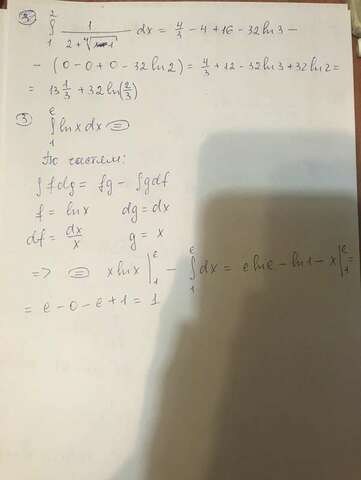 ② ∫₁² 1/(2+⁴√(x-1)) dx = 4/3 - 4 + 16 - 32 ln 3 -
- (0 - 0 + 0 - 32 ln 2) = 4/3 + 12 - 32 ln 3 + 32 ln 2 =
= 13 1/3 + 32 ln(2/3)
③ ∫₁ᵉ ln x dx ⊜
По частям:
∫ f dg = fg - ∫ g df
f = ln x dg = dx
df = dx/x g = x
=> ⊜ x ln x |₁ᵉ - ∫₁ᵉ dx = e ln e - ln 1 - x |₁ᵉ =
= e - 0 - e + 1 = 1